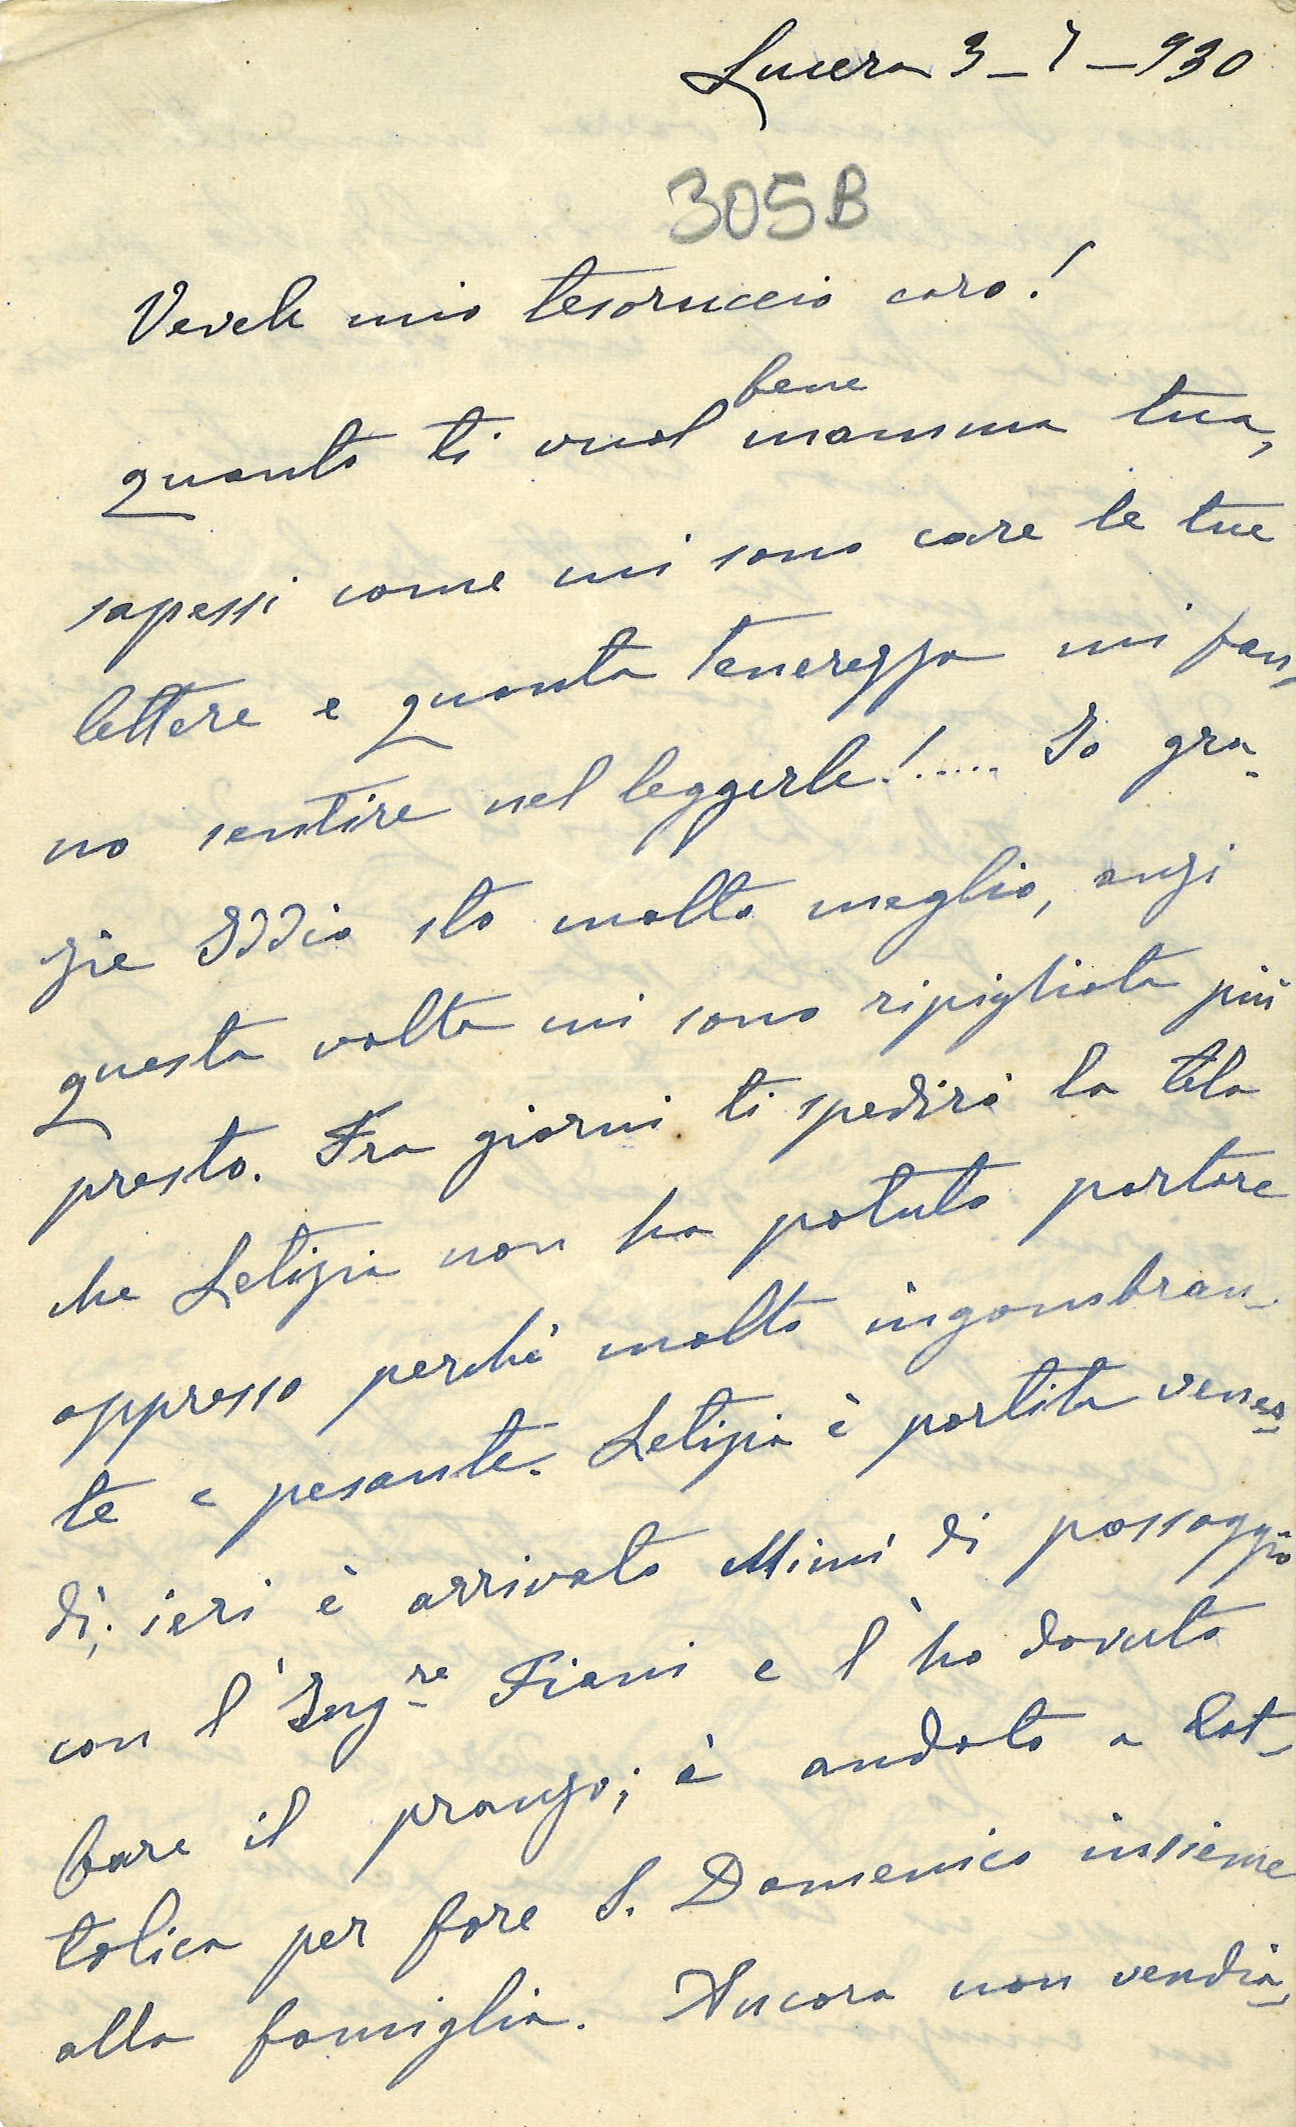 Lucera 3-7-930
305B
Vevele mio tesoruccio caro!
bene
quanto ti vuol mamma tua,
sapessi come mi sono care le tue
lettere e quanta tenerezza mi fan-
no sentire nel leggerle!..... Io gra-
zie Iddio sto molto meglio, anzi
questa volta mi sono ripigliata più
presto. Fra giorni ti spedirò la tela
che Letizia non ha potuto portare
appresso perchè molto ingombran-
te e pesante. Letizia è partita vener-
dì; ieri è arrivato Mimì di passaggio
con l'Ingre Fiani e l'ho dovuto
fare il pranzo; è andato a Cat-
tolica per fare S. Domenico insieme
alla famiglia. Ancora non vendia-